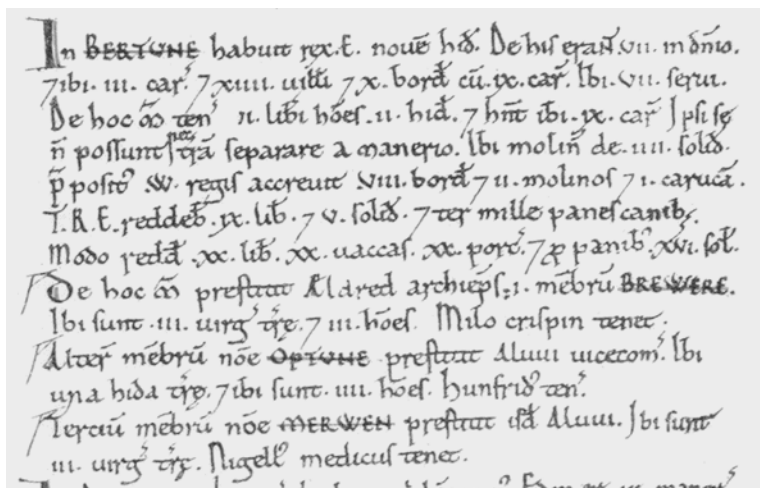 In BERTUNE habuit rex. E. nouē hiđ. De his erañt .vii. in dñio.
7 ibi .iii. car̃. 7 xiiii. uilłi 7 x. borđ cū .ix. car̃. Ibi .vii. serui.
De hoc m̃ teñ ii. libi hōes .ii. hiđ. 7 hñt ibi .ix. car̃. Ipsi se
ñ possunt nec t̃rā separare a manerio. Ibi moliñ de .iiii. soliđ.
p̄posit' .W. regis accreuit .viii. borđ 7 ii. molinos 7 i. carucā.
T. R. E. reddeb̃ .ix. lib̃. 7 v. soliđ. 7 ter mille panes canib;.
Modo redđ .xx. lib̃. xx. uaccas. xx. porc'. 7 ꝓ panib' .xvi. soł.
De hoc m̃ prestitit Aldred archiep̃s .i. mēbrū BREWERE.
Ibi sunt .iii. uirg' t̃rę. 7 iii. hōes. Milo crispin tenet.
Alteř mēbrū nōe OPTUNE prestitit Aluui uicecom'. Ibi
una hida t̃rę. 7 ibi sunt .iiii. hōes. Hunfriđ' teñ.
Terciū mēbrū nōe MERWEN prestitit isđ Aluui. Ibi sunt
iii. uirg' t̃rę. Nigell' medicus tenet.